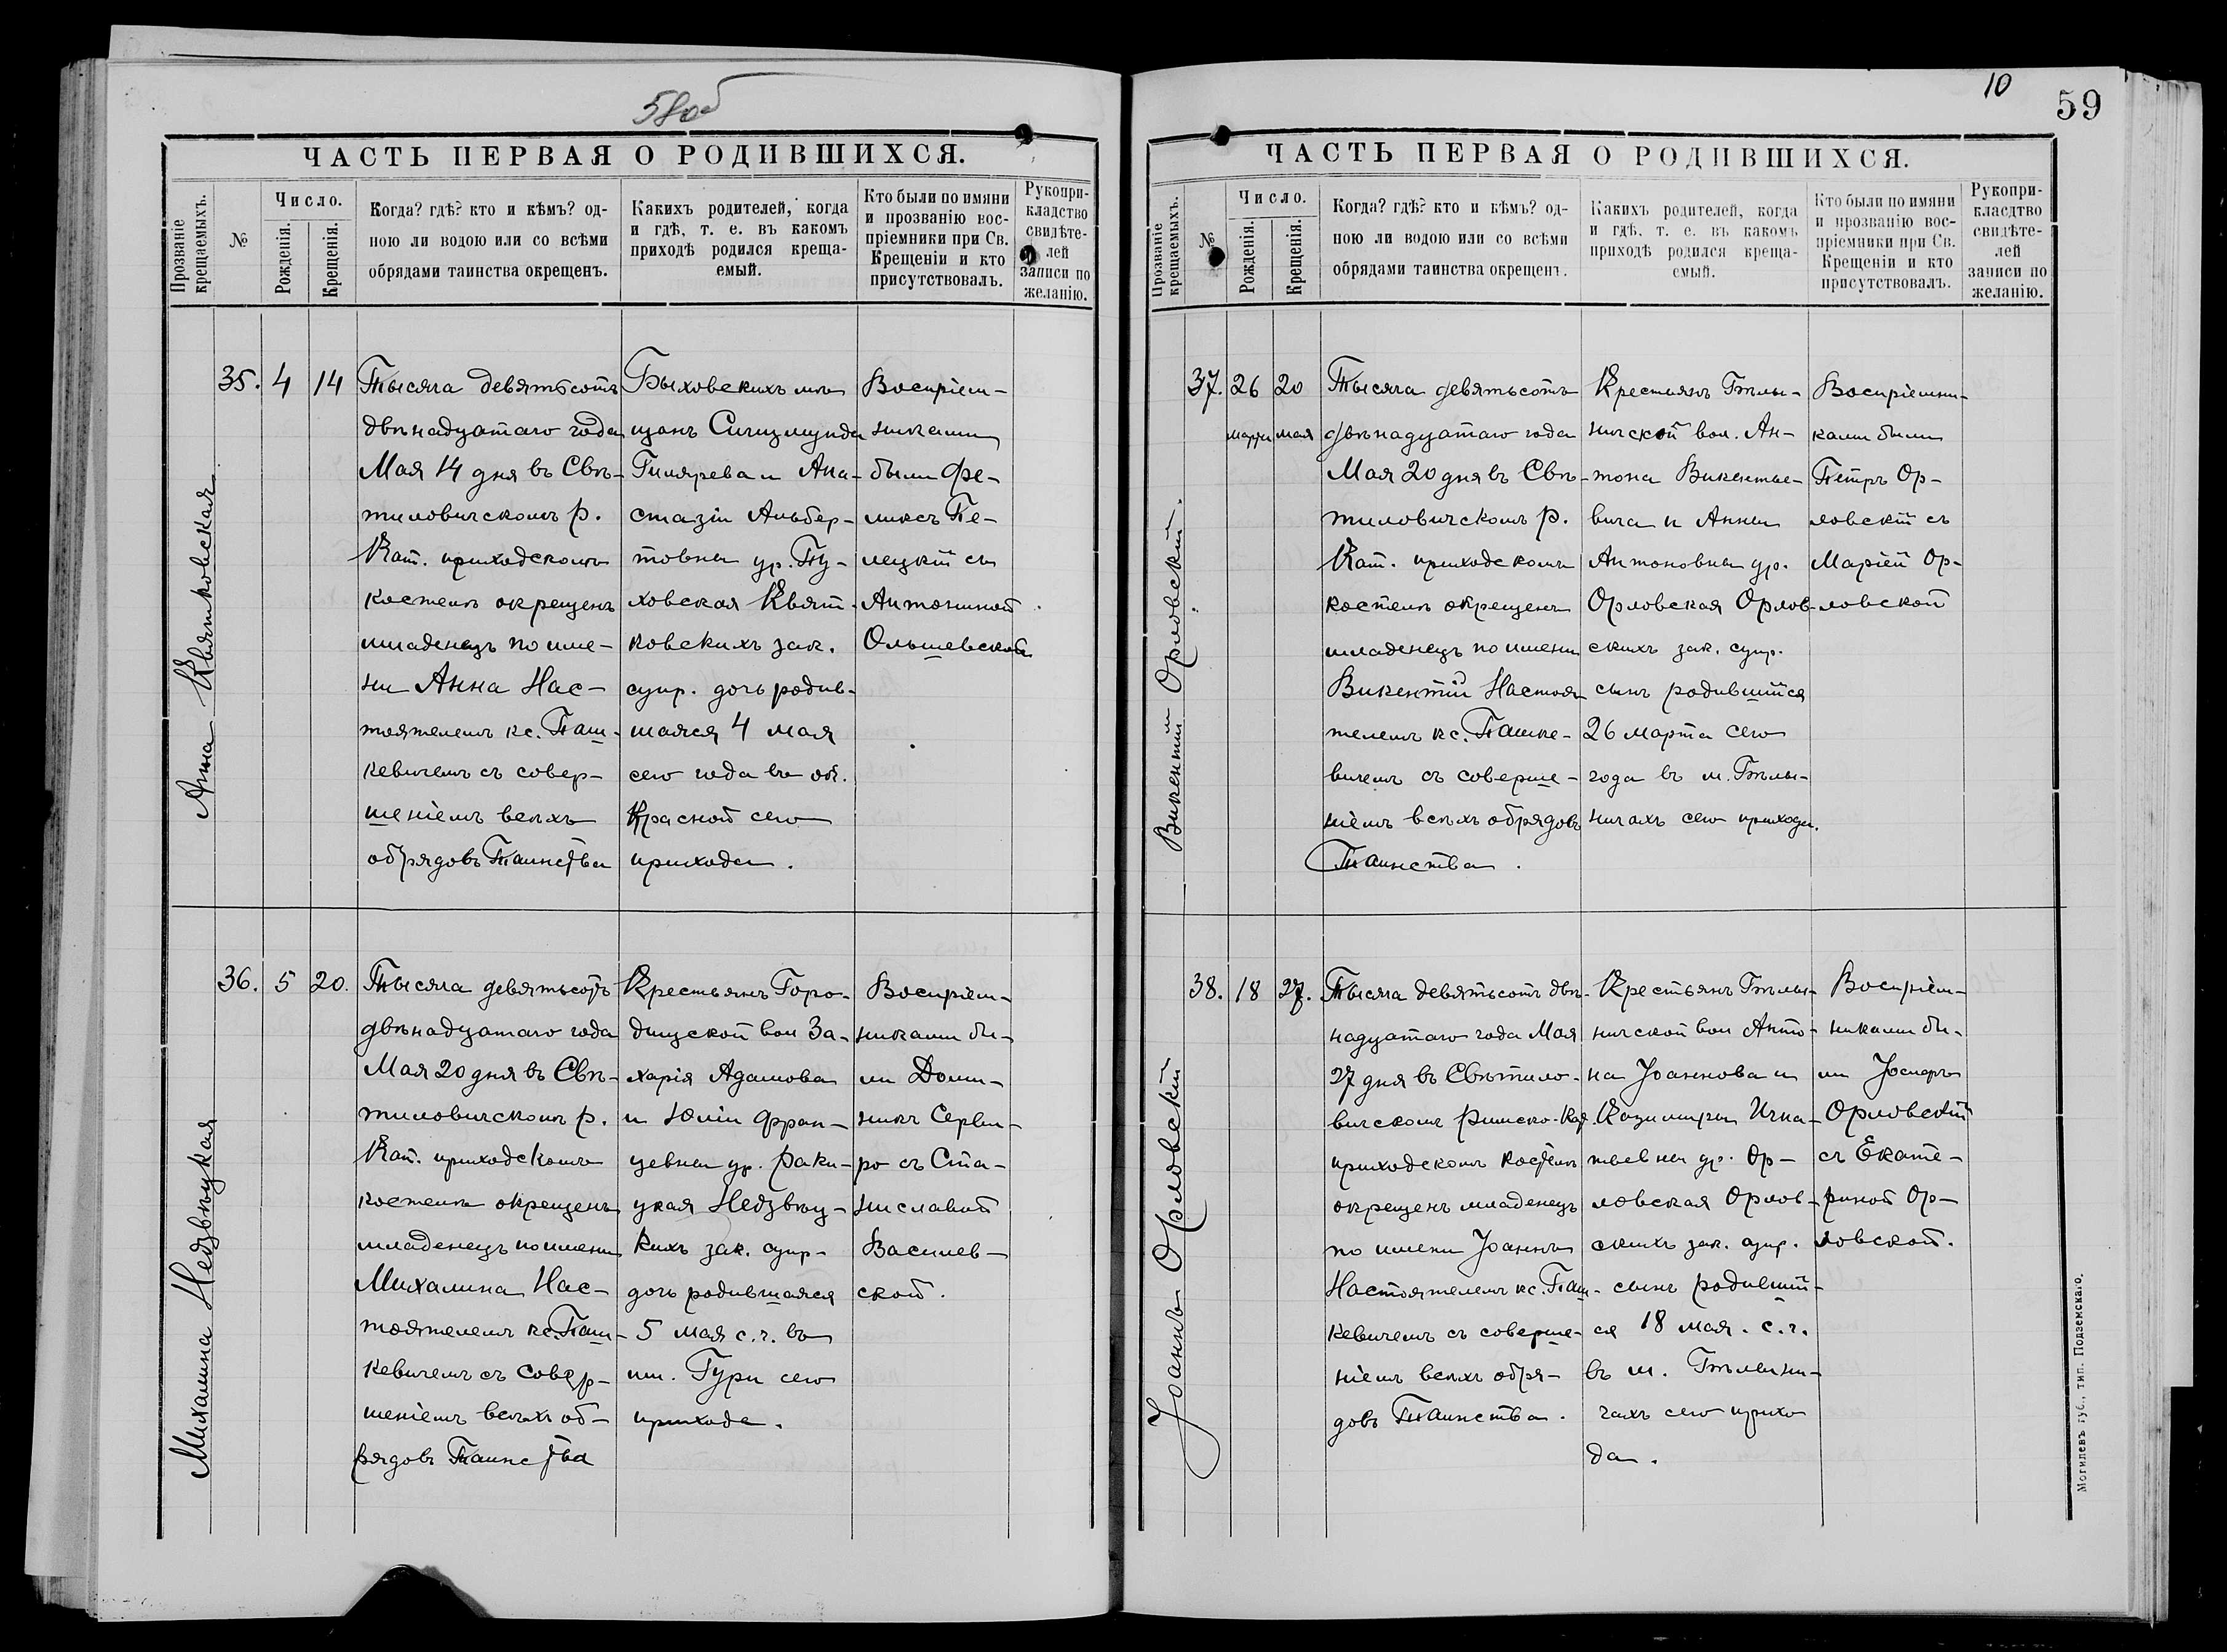 58об
ЧАСТЬ ПЕРВАЯ О РОДИВШИХСЯ.
Прозваніе крещаемыхъ.
№
Число.
Рожденія.
Крещенія.
Когда? гдѣ? кто и кѣмъ? од-
ною ли водою или со всѣми
обрядами таинства окрещенъ.
Какихъ родителей, когда
и гдѣ, т. е. въ какомъ
приходѣ родился креща-
емый.
Кто были по имяни
и прозванію вос-
пріемники при Св.
Крещеніи и кто
присутствовалъ.
Рукопри-
кладство
свидѣте-
лей
записи по
желанію.
Анна Квятковская
35. 4 14
Тысяча девятьсотъ
двѣнадцатаго года
Мая 14 дня въ Свѣ-
тиловичскомъ р.
Кат. приходскомъ
костелѣ окрещенъ
младенецъ по име-
ни Анна Нас-
тоятелемъ кс. Паш-
кевичемъ съ совер-
шеніемъ всѣхъ
обрядовъ Таинства
Быховскихъ мѣ
щанъ Сигизмунда
Гиляріева и Ана-
стазіи Альбер-
товны ур. Пу-
ховская Квят-
ковскихъ зак.
супр. дочь родив-
шаяся 4 мая
сего года въ ок.
Красной сего
прихода.
Воспріем-
никами
были Фе-
ликсъ Пе-
лецкій съ
Антониной
Ольшевской
Михалина Недзвѣцкая
36. 5 20.
Тысяча девятьсотъ
двѣнадцатаго года
Мая 20 дня въ Свѣ-
тиловичскомъ р.
Кат. приходскомъ
костелѣ окрещенъ
младенецъ по имени
Михалина Нас-
тоятелемъ кс. Паш-
кевичемъ съ совер-
шеніемъ всѣхъ об-
рядовъ Таинства
Крестьянъ Горо-
дищской вол За-
харія Адамова
и Юліи Фран-
цевны ур. Раки-
цкая Недзвѣц-
кихъ зак. супр.
дочь родившаяся
5 мая с. г. въ
им. Гури сего
прихода.
Воспріем-
никами бы-
ли Доми-
никъ Серви-
ро съ Ста-
ниславой
Василев-
ской.
10
59
ЧАСТЬ ПЕРВАЯ О РОДИВШИХСЯ.
Прозваніе крещаемыхъ.
№
Число.
Рожденія.
Крещенія.
Когда? гдѣ? кто и кѣмъ? од-
ною ли водою или со всѣми
обрядами таинства окрещенъ.
Какихъ родителей, когда
и гдѣ, т. е. въ какомъ
приходѣ родился креща-
емый.
Кто были по имяни
и прозванію вос-
пріемники при Св.
Крещеніи и кто
присутствовалъ.
Рукопри-
класдтво
свидѣте-
лей
записи по
желанію.
Викентій Орловскій.
37. 26 20
марта мая
Тысяча девятьсотъ
двѣнадцатаго года
Мая 20 дня въ Свѣ-
тиловичскомъ р.
Кат. приходскомъ
костелѣ окрещенъ
младенецъ по имени
Викентій Настоя
телемъ кс. Пашке-
вичемъ съ соверше-
ніемъ всѣхъ обрядовъ
Таинства.
Крестьянъ Бѣлы-
ничской вол. Ан-
тона Викентье-
вича и Анны
Антоновны ур.
Орловская Орлов-
скихъ зак. супр.
сынъ родившійся
26 марта сего
года въ м. Бѣлы-
ничахъ сего прихода.
Воспріемни-
ками были
Петръ Ор-
ловскій съ
Маріей Ор-
ловской
Іоаннъ Орловскій
38. 18 27.
Тысяча девятьсотъ двѣ-
надцатаго года Мая
27 дня въ Свѣтило-
вичскомъ Римско-Кат.
приходскомъ костелѣ
окрещенъ младенецъ
по имени Іоаннъ
Настоятелемъ кс. Паш-
кевичемъ съ соверше-
ніемъ всѣхъ обря-
довъ Таинства.
Крестьянъ Бѣлы-
ничской вол Анто-
на Іоаннова и
Казимиры Игна-
тьевны ур. Ор-
ловская Орлов-
скихъ зак. супр.
сынъ родившій-
ся 18 мая. с. г.
въ м. Бѣлыни-
чахъ сего прихо
да.
Воспріем-
никами бы-
ли Іосифъ
Орловскій
съ Екате-
риной Ор-
ловской.
Могилевъ губ., тип. Подземскаго.